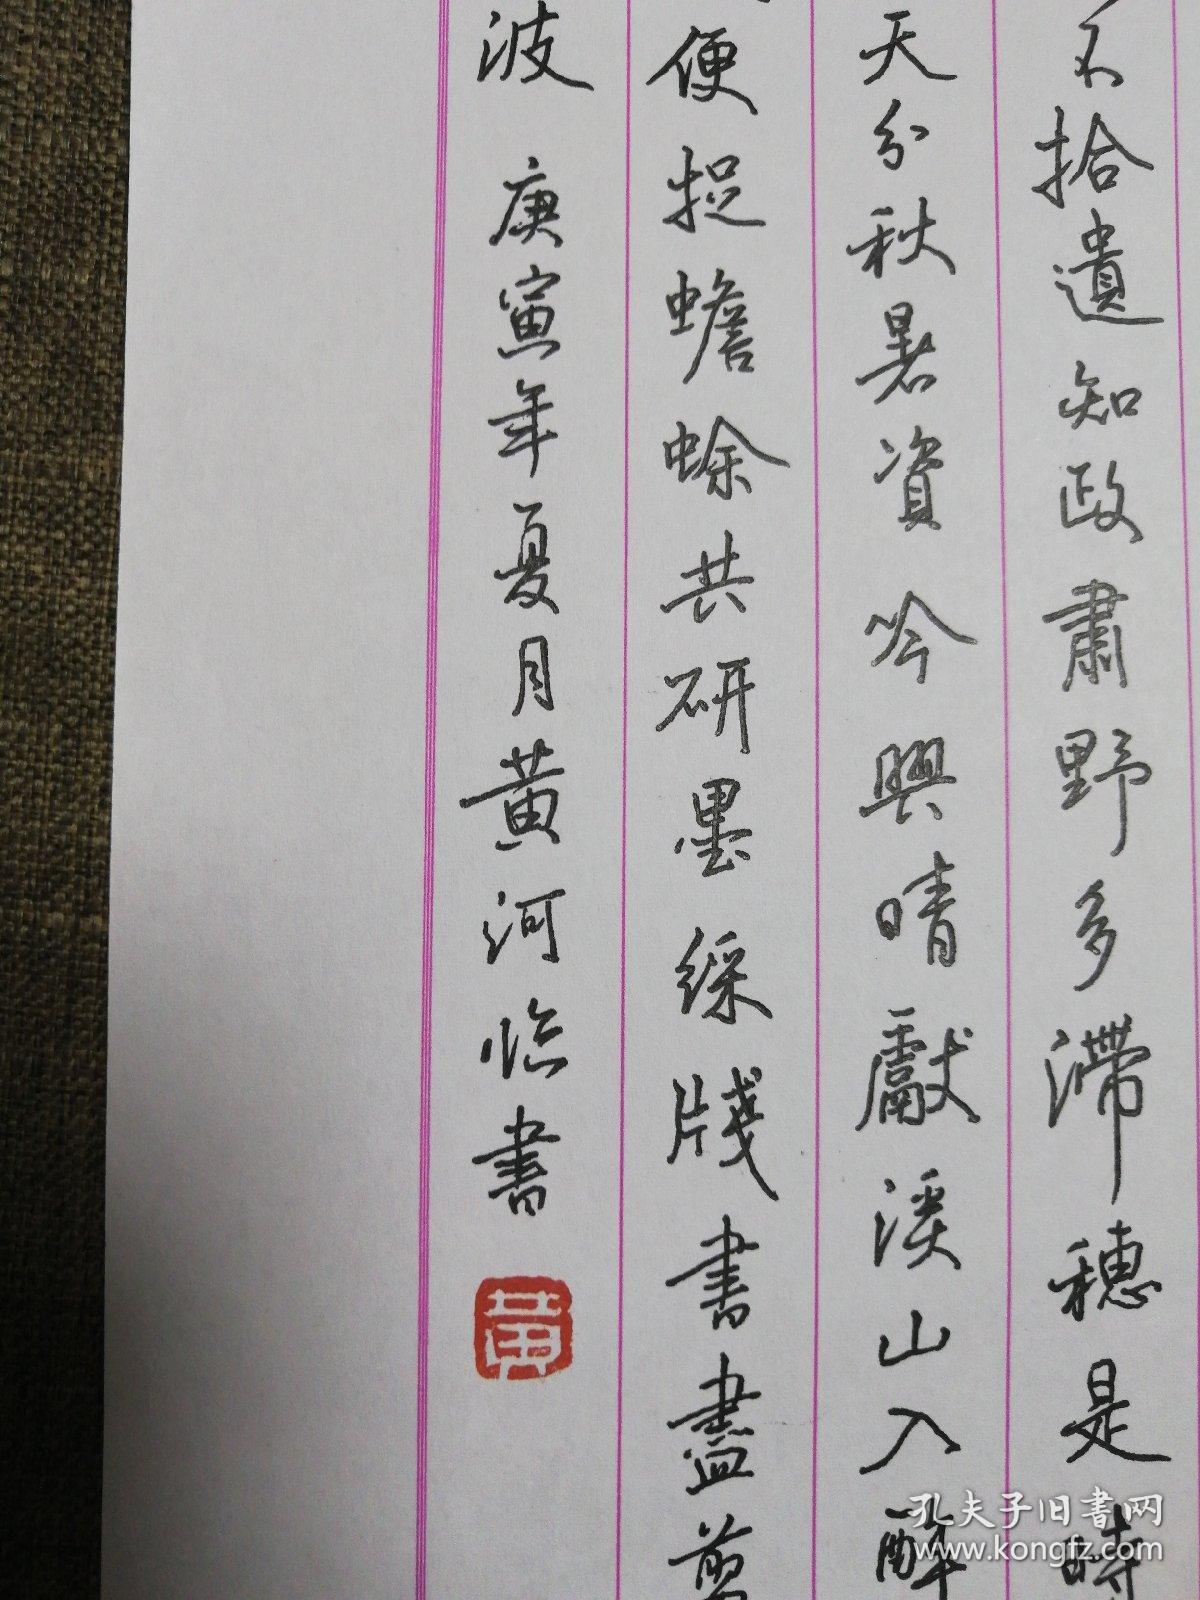 不拾遺知政肅野多滯穗是時
天分秋暑資吟興晴獻溪山入醉
便捉蟾蜍共研墨綵牋書盡剪
波 庚寅年夏月黄河临書
黄
孔夫子旧書网
www.kongfz.com